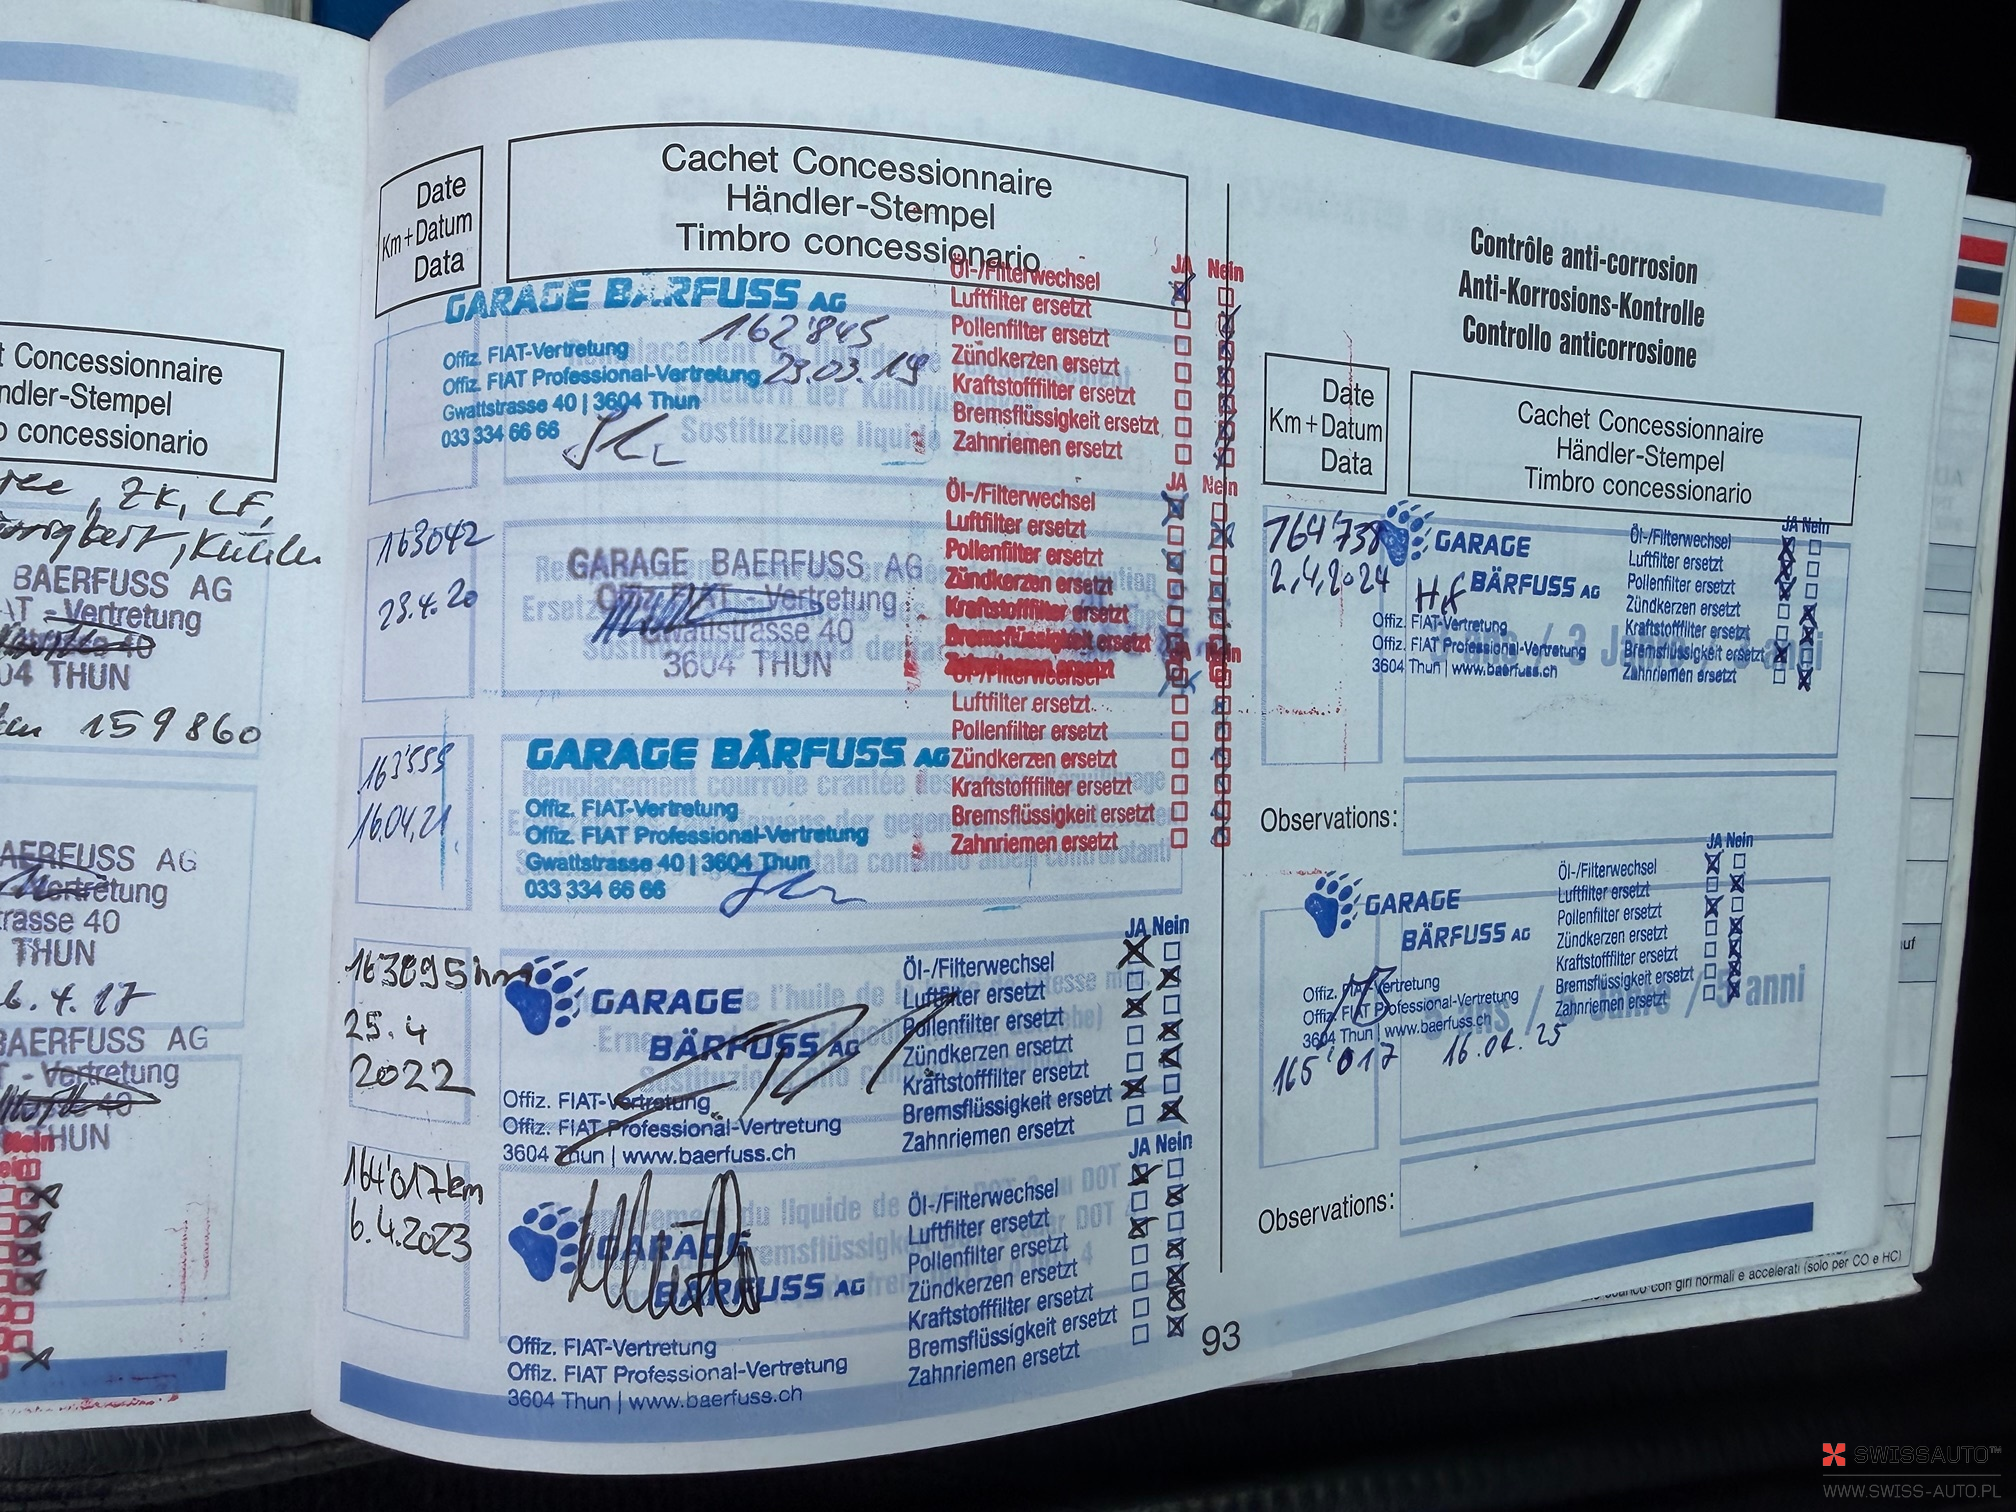 t Concessionnaire
ndler-Stempel
o concessionario
, ZK, LF,
BAERFUSS AG
- Vertretung
40
04 THUN
159860
AERFUSS AG
Vertretung
rasse 40
THUN
6.4.17
BAERFUSS AG
T - Vertretung
40
THUN
Nein
Date
Km + Datum
Data
Cachet Concessionnaire
Händler-Stempel
Timbro concessionario
GARAGE BÄRFUSS AG
162'845
23.03.19
Offiz. FIAT-Vertretung
Offiz. FIAT Professional-Vertretung
Gwattstrasse 40 | 3604 Thun
033 334 66 66
JA Nein
Öl-/Filterwechsel
Luftfilter ersetzt
Pollenfilter ersetzt
Zündkerzen ersetzt
Kraftstofffilter ersetzt
Bremsflüssigkeit ersetzt
Zahnriemen ersetzt
163042
23.4.20
GARAGE BAERFUSS AG
Offiz. FIAT - Vertretung
Gwattstrasse 40
3604 THUN
JA Nein
Öl-/Filterwechsel
Luftfilter ersetzt
Pollenfilter ersetzt
Zündkerzen ersetzt
Kraftstofffilter ersetzt
Bremsflüssigkeit ersetzt
Zahnriemen ersetzt
163'555
16.04.21
GARAGE BÄRFUSS AG
Offiz. FIAT-Vertretung
Offiz. FIAT Professional-Vertretung
Gwattstrasse 40 | 3604 Thun
033 334 66 66
Öl-/Filterwechsel
Luftfilter ersetzt
Pollenfilter ersetzt
Zündkerzen ersetzt
Kraftstofffilter ersetzt
Bremsflüssigkeit ersetzt
Zahnriemen ersetzt
25.4
2022
GARAGE
BÄRFUSS AG
Offiz. FIAT-Vertretung
Offiz. FIAT Professional-Vertretung
3604 Thun | www.baerfuss.ch
JA Nein
Öl-/Filterwechsel
Luftfilter ersetzt
Pollenfilter ersetzt
Zündkerzen ersetzt
Kraftstofffilter ersetzt
Bremsflüssigkeit ersetzt
Zahnriemen ersetzt
164'017km
6.4.2023
GARAGE
BÄRFUSS AG
Offiz. FIAT-Vertretung
Offiz. FIAT Professional-Vertretung
3604 Thun | www.baerfuss.ch
JA Nein
Öl-/Filterwechsel
Luftfilter ersetzt
Pollenfilter ersetzt
Zündkerzen ersetzt
Kraftstofffilter ersetzt
Bremsflüssigkeit ersetzt
Zahnriemen ersetzt
93
Contrôle anti-corrosion
Anti-Korrosions-Kontrolle
Controllo anticorrosione
Date
Km + Datum
Data
Cachet Concessionnaire
Händler-Stempel
Timbro concessionario
164'738
2.4.2024
GARAGE
BÄRFUSS AG
Offiz. FIAT-Vertretung
Offiz. FIAT Professional-Vertretung
3604 Thun | www.baerfuss.ch
JA Nein
Öl-/Filterwechsel
Luftfilter ersetzt
Pollenfilter ersetzt
Zündkerzen ersetzt
Kraftstofffilter ersetzt
Bremsflüssigkeit ersetzt
Zahnriemen ersetzt
/ 3 Jahre / 3 anni
Observations:
GARAGE
BÄRFUSS AG
Offiz. FIAT-Vertretung
Offiz. FIAT Professional-Vertretung
3604 Thun | www.baerfuss.ch
JA Nein
Öl-/Filterwechsel
Luftfilter ersetzt
Pollenfilter ersetzt
Zündkerzen ersetzt
Kraftstofffilter ersetzt
Bremsflüssigkeit ersetzt
Zahnriemen ersetzt
ans / 5 Jahre / 5 anni
165'017
Observations:
con giri normali e accelerati (solo per CO e HC)
uf
SWISSAUTO™
WWW.SWISS-AUTO.PL